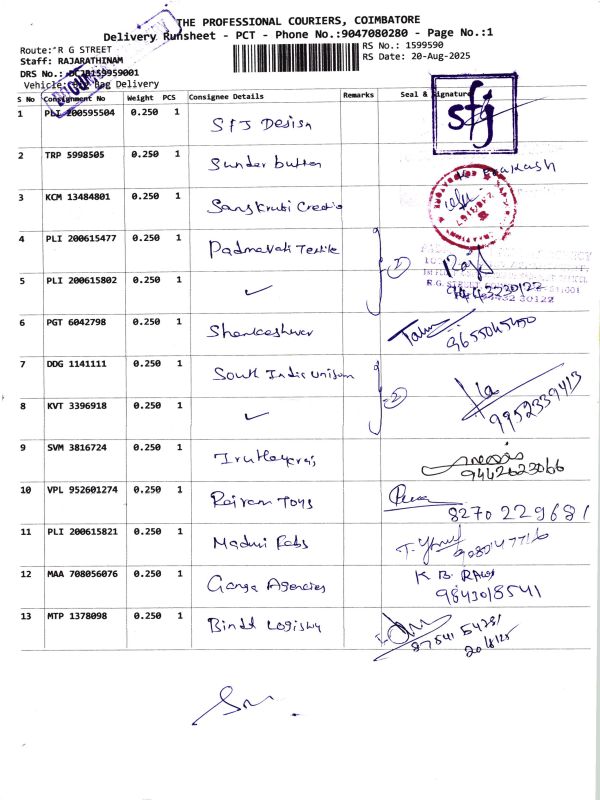 THE PROFESSIONAL COURIERS, COIMBATORE
Delivery Runsheet - PCT - Phone No.:9047080280 - Page No.:1
Route: R G STREET
RS No.: 1599590
Staff: RAJARATHINAM
RS Date: 20-Aug-2025
DRS No.:
Vehicle: Bag Delivery
S No Consignment No Weight PCS Consignee Details Remarks Seal & Signature
1 PLI 200595504 0.250 1 SFJ Design sfj
2 TRP 5998505 0.250 1 Sunder button Prakash
3 KCM 13484801 0.250 1 Sanskruti Creatio
4 PLI 200615477 0.250 1 Padmavati Textile 2
R.G. STREET
5 PLI 200615802 0.250 1 ✓ 9442230122
94432 30122
6 PGT 6042798 0.250 1 Shankeshwar 9655045450
7 DDG 1141111 0.250 1 South Indic uniform 2
8 KVT 3396918 0.250 1 ✓ 9952339413
9 SVM 3816724 0.250 1 9442623066
10 VPL 952601274 0.250 1 Rajram Toys 8270229681
11 PLI 200615821 0.250 1 Madhuri Fabs
12 MAA 708056076 0.250 1 Ganga Agencies K B RAVI
9843018541
13 MTP 1378098 0.250 1 Bindd Logistiy
87541 54281
20/8/25